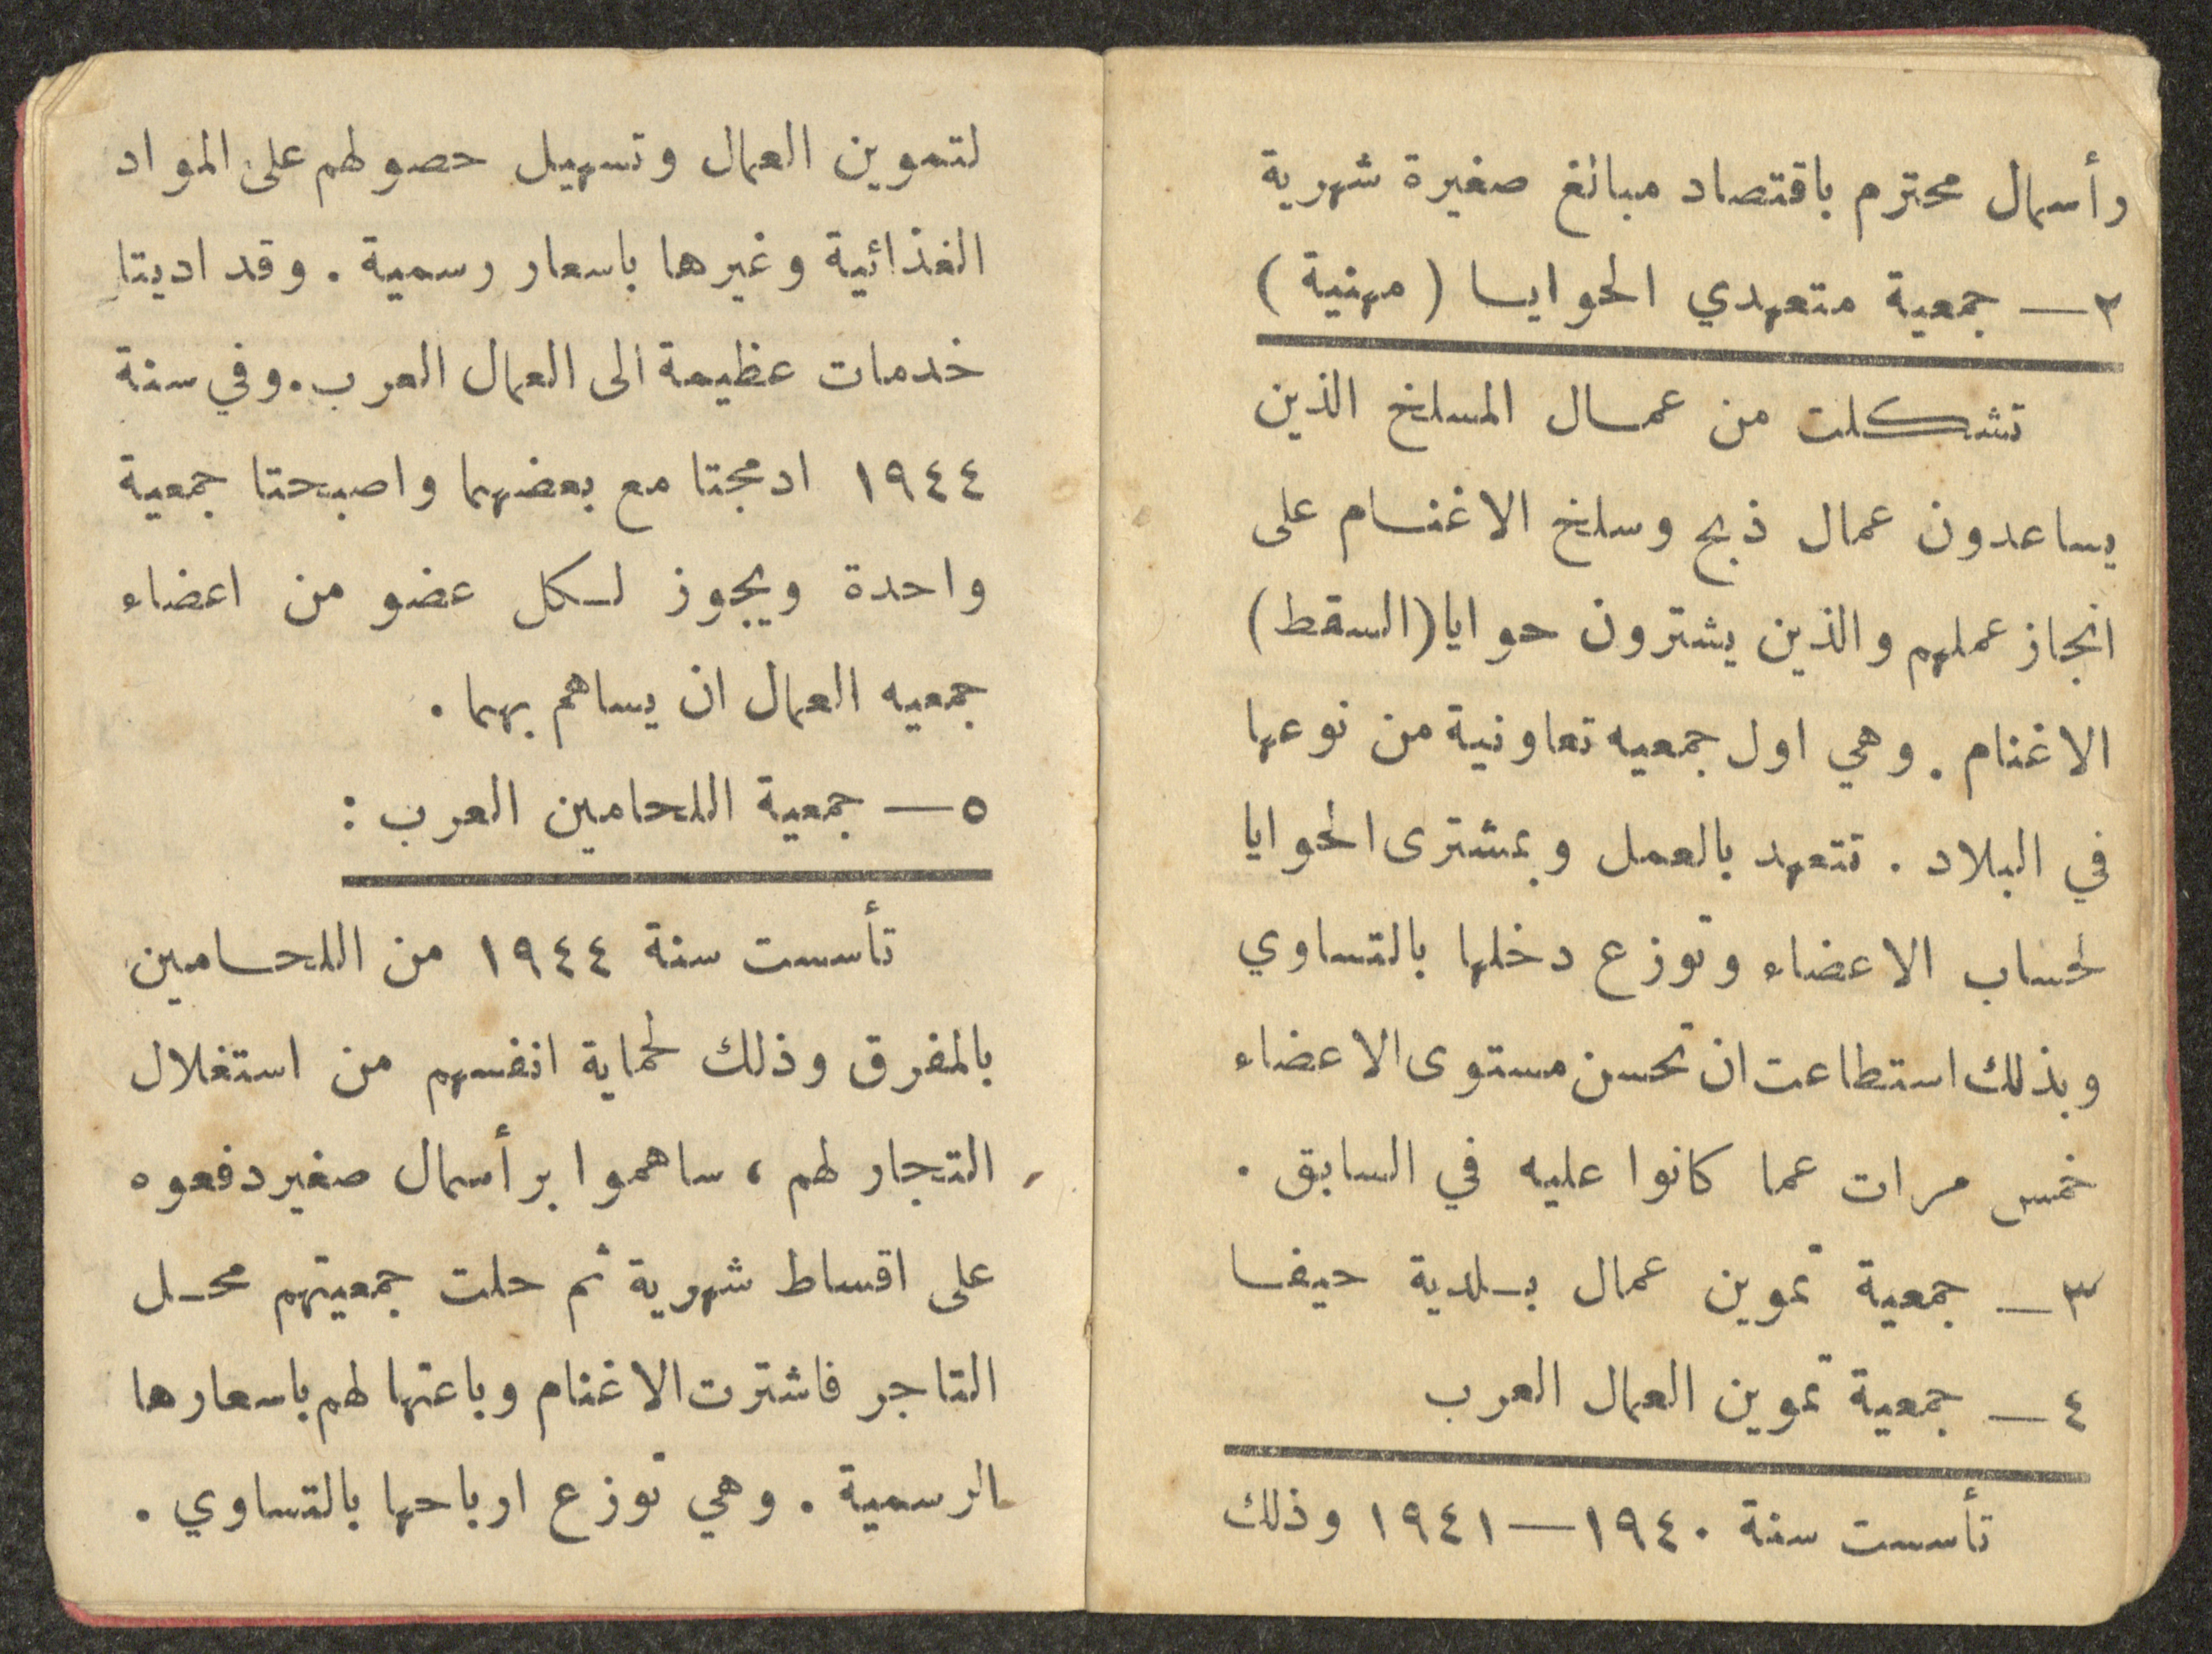 رأسمال محترم باقتصاد مبالغ صغيرة شهرية
٢ — جمعية متعهدي الحوايسا ( مهنية )
تشكلت من عمال المسلخ الذين
يساعدون عمال ذبح وسلخ الاغنام على
انجاز عملهم والذين يشترون حوايا (السقط)
الاغنام . وهي اول جمعيه تعاونية من نوعها
في البلاد . تتعهد بالعمل وبمشترى الحوايا
لحساب الاعضاء وتوزع دخلها بالتساوي
وبذلك استطاعت ان تحسن مستوى الاعضاء
خمس مرات عما كانوا عليه في السابق .
٣ — جمعية تموين عمال بلدية حيفا
٤ — جمعية تموين العمال العرب
تأسست سنة ١٩٤٠ — ١٩٤١ وذلك
لتموين العمال وتسهيل حصولهم على المواد
الغذائية وغيرها باسعار رسمية . وقد اديتا
خدمات عظيمة الى العمال العرب . وفي سنة
١٩٤٤ ادمجتا مع بعضهما واصبحتا جمعية
واحدة ويجوز لكل عضو من اعضاء
جمعيه العمال ان يساهم بهما .
٥ — جمعية اللحامين العرب :
تأسست سنة ١٩٤٤ من اللحامين
بالمفرق وذلك لحماية انفسهم من استغلال
التجار لهم ، ساهموا برأسمال صغير دفعوه
على اقساط شهرية ثم حلت جمعيتهم محل
التاجر فاشترت الاغنام وباعتها لهم باسعارها
الرسمية . وهي توزع ارباحها بالتساوي .